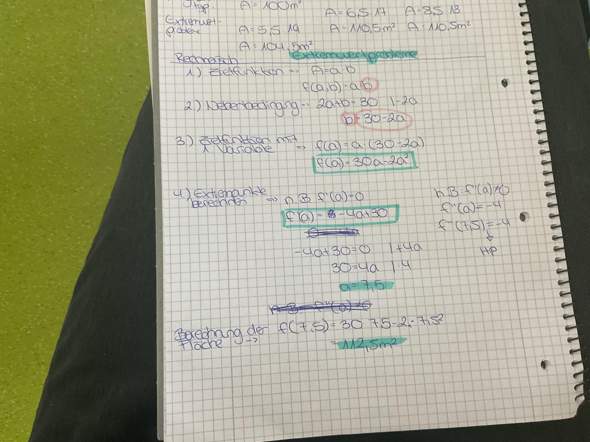 A=100m²
Extremwert-
probleme
A=6,5·17 A=8,5·13
A=5,5·19 A=110,5m² A=110,5m²
A=104,5m²
Rechnerisch Extremwertprobleme
1) Zielfunktion -- A=a·b
f(a,b)=a·b
2) Nebenbedingung -- 2a+b=30 |-2a
b=30-2a
3) Zielfunktion mit
1 Variable -> f(a)=a·(30-2a)
f(a)=30a-2a²
4) Extrempunkte
berechnen => n.B f'(a)=0
f'(a)= -4a+30
-4a+30=0 |+4a
30=4a |:4
a=7,5
h.B. f''(a)≠0
f''(a)=-4
f''(7,5)=-4
HP
Berechnung der
Fläche -> f(7,5)=30·7,5-2·7,5²
=112,5m²